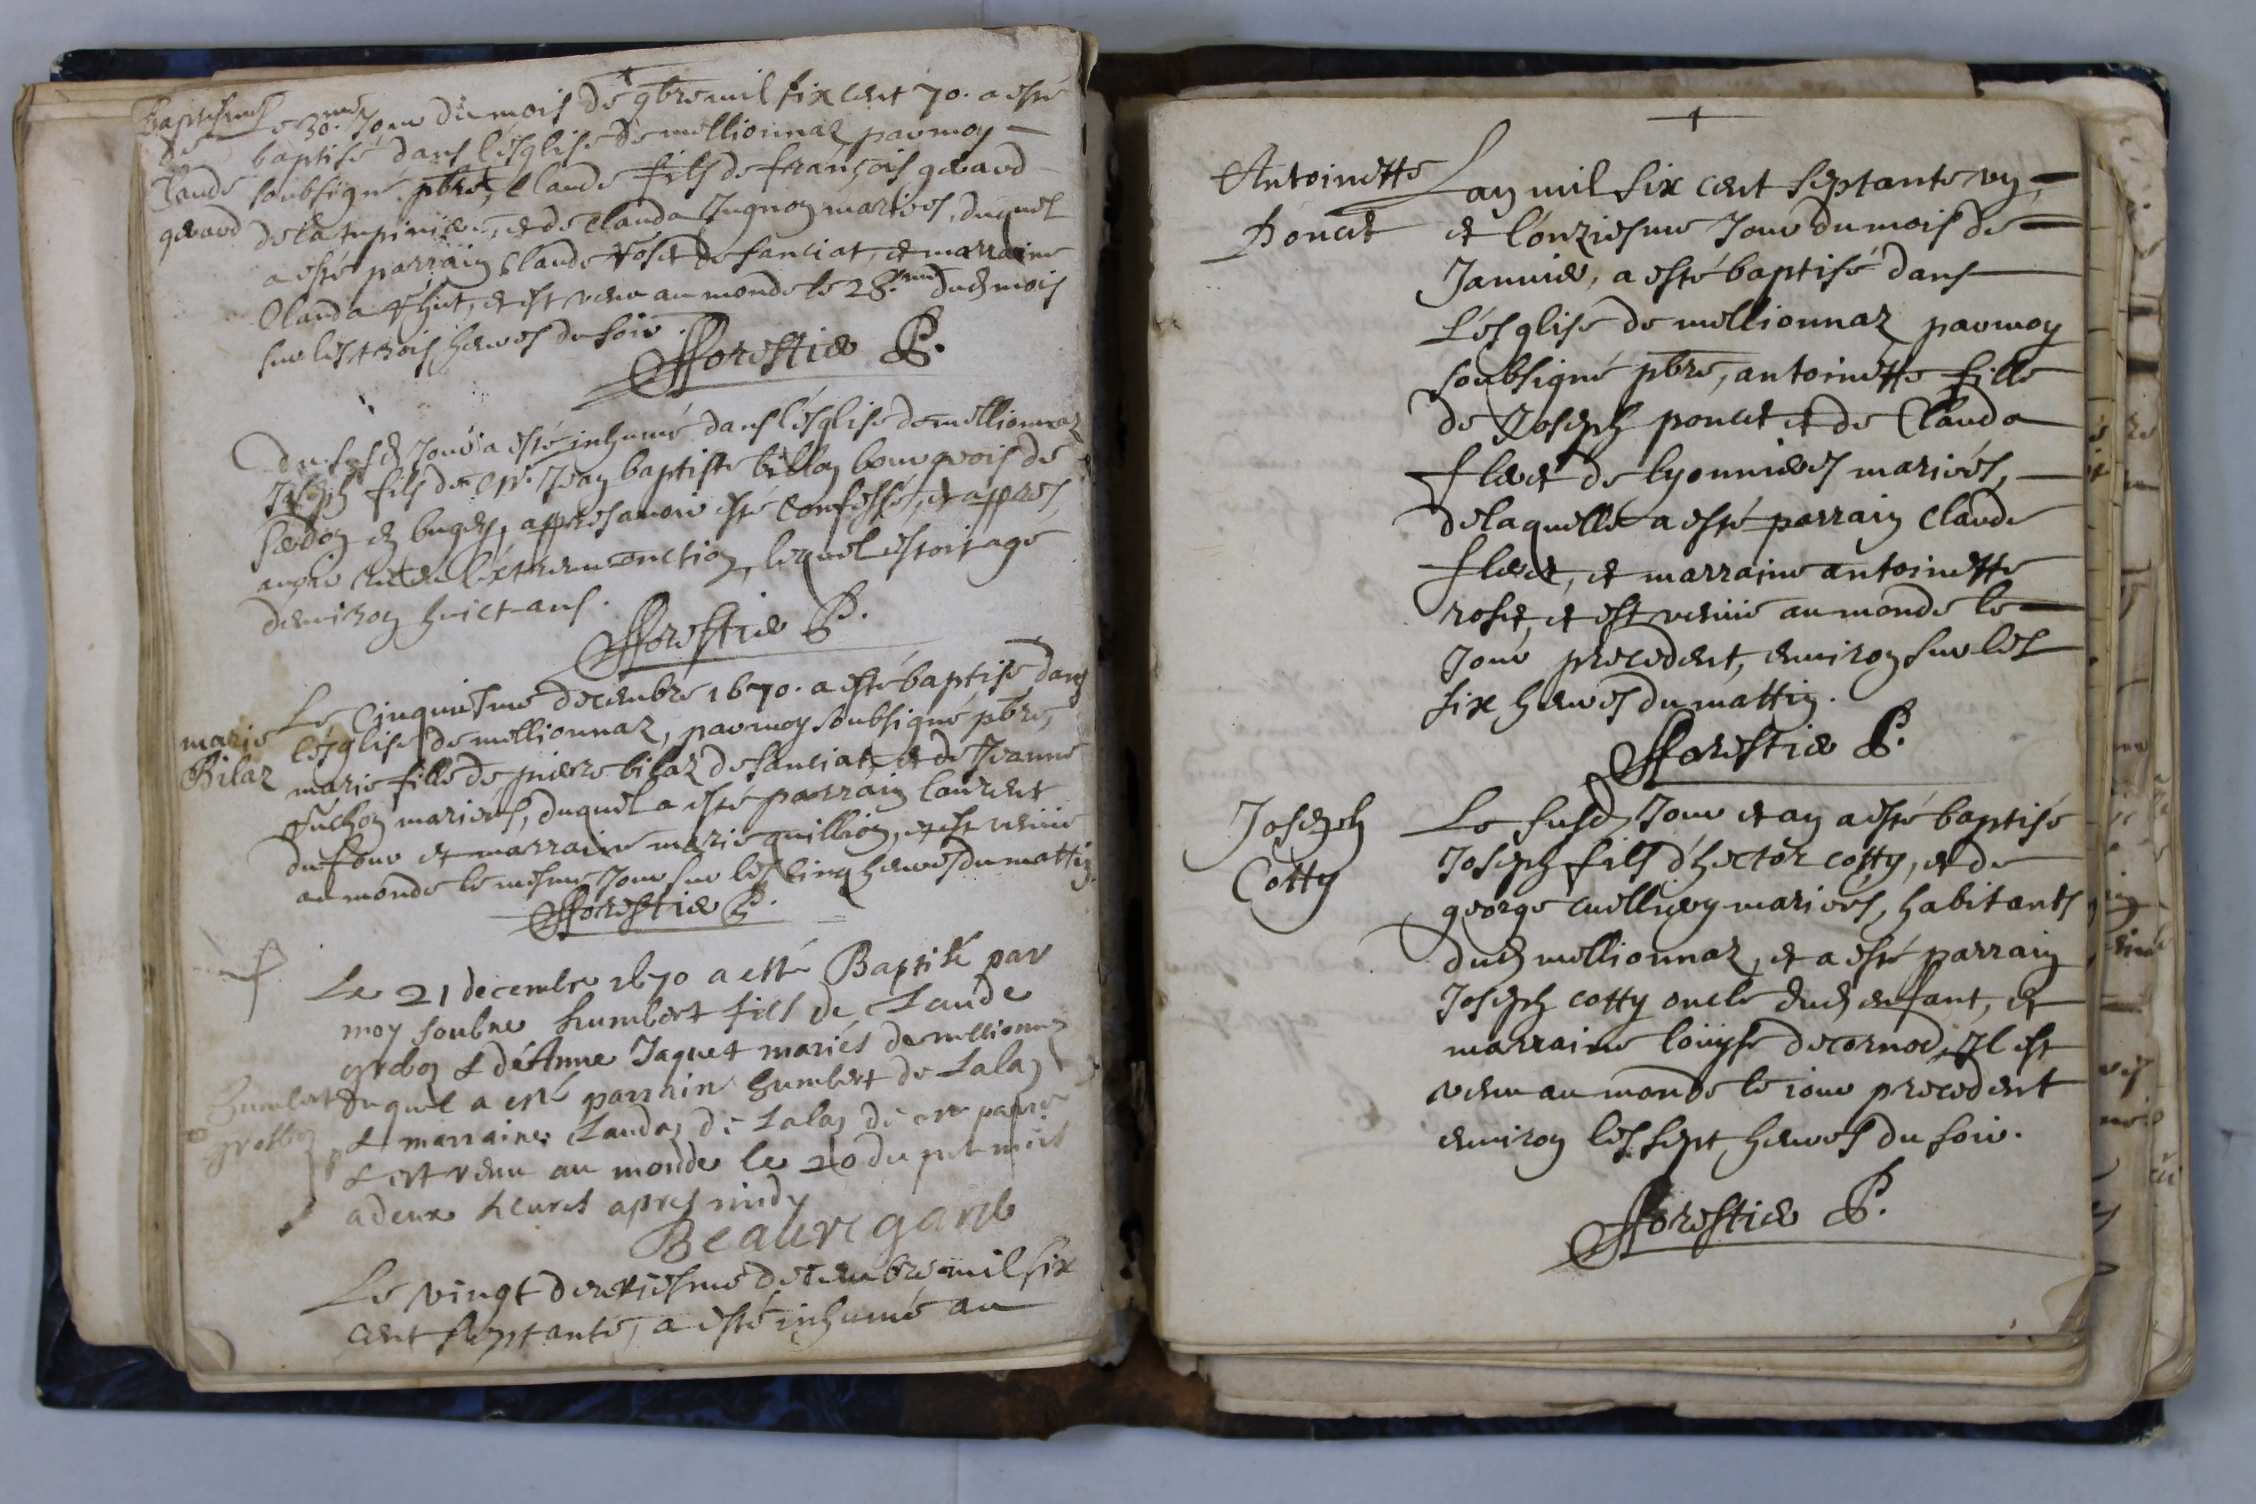 Baptesme Le 30.me Jour du mois de 9bre mil six cent 70. a esté
de baptisé dans l'esglise de mellionnaz par moy
Claude soubsigné pbre, Claude fils de françois gerard
gerard de la tupiniere, et de Clauda Jugnon mariés, duquel
a esté parrain Claude roset de sanciat, et marraine
Clauda et est venu au monde le 28.me dud mois
sur les trois heures du soir.
fforestier P.
Du susd Jour a esté inhumé dans l'esglise de mellionnaz
Joseph fils de Sr. Jean baptiste billon bourgeois de
en bugey, apprés avoir esté confessé, et apprés
avoir receu l'extreme onction, lequel estoit agé
d'environ huict ans.
fforestier P.
Le Cinquiesme decembre 1670. a esté baptisé dans
l'esglise de mellionnaz, par moy soubsigné pbre,
marie marie fille de pierre bilaz de sanciat, et de Jeanne
Bilaz mariés, duquel a esté parrain laurent
dufour et marraine marie guillion, et est venüe
au monde le mesme Jour sur les cinq heures du mattin.
fforestier P.
Le 21 decembre 1670 a esté Baptisé par
moy soubne humbert fils de Claude
grobon & de Anne Jaquet mariés de mellionnaz
humbert duquel a esté parrain humbert de Lalaz
grobon & marraine Claudaz de Lalaz de cette paroisse
& est venu au monde le 20 du pnt mois
a deux heures apres midy
Beauregard
Le vingt deuxiesme decembre mil six
cent septante, a esté inhumé au
Antoinette L'an mil six cent septante un,
Poncet et l'onziesme Jour du mois de
Janvier, a esté baptisé dans
L'esglise de mellionnaz par moy
soubsigné pbre, antoinette fille
de Joseph poncet et de Clauda
fleret de lyonnieres mariés,
de laquelle a esté parrain Claude
fleret, et marraine antoinette
roset, et est venüe au monde le
Jour precedent, environ sur les
six heures du mattin.
fforestier P.
Joseph Le susd Jour et an a esté baptisé
Cotty Joseph fils d'hector cotty, et de
george cuellirey mariés, habitants
dud mellionnaz, et a esté parrain
Joseph cotty oncle dud enfant, et
marraine loüyse decornod, Il est
venu au monde le iour precedent
environ les sept heures du soir.
fforestier P.